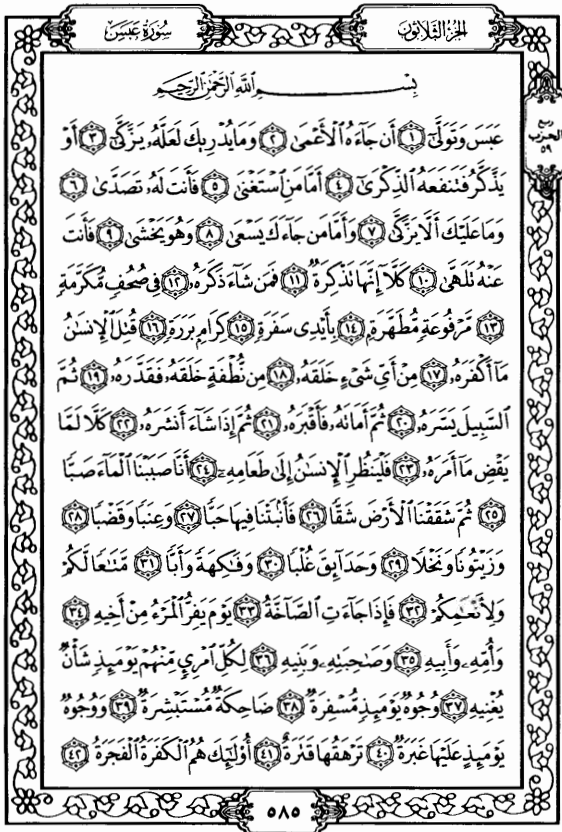 سُورَةُ عَبَسَ
الجُزءُ الثَّلَاثُونَ
ربع
الحزب
٥٩
بِسْمِ ٱللَّهِ ٱلرَّحْمَٰنِ ٱلرَّحِيمِ
عَبَسَ وَتَوَلَّىٰٓ ١ أَن جَآءَهُ ٱلْأَعْمَىٰ ٢ وَمَا يُدْرِيكَ لَعَلَّهُۥ يَزَّكَّىٰٓ ٣ أَوْ
يَذَّكَّرُ فَتَنفَعَهُ ٱلذِّكْرَىٰٓ ٤ أَمَّا مَنِ ٱسْتَغْنَىٰ ٥ فَأَنتَ لَهُۥ تَصَدَّىٰ ٦
وَمَا عَلَيْكَ أَلَّا يَزَّكَّىٰ ٧ وَأَمَّا مَن جَآءَكَ يَسْعَىٰ ٨ وَهُوَ يَخْشَىٰ ٩ فَأَنتَ
عَنْهُ تَلَهَّىٰ ١٠ كَلَّآ إِنَّهَا تَذْكِرَةٌ ١١ فَمَن شَآءَ ذَكَرَهُۥ ١٢ فِى صُحُفٍ مُّكَرَّمَةٍ
١٣ مَّرْفُوعَةٍ مُّطَهَّرَةٍۭ ١٤ بِأَيْدِى سَفَرَةٍ ١٥ كِرَامٍۭ بَرَرَةٍ ١٦ قُتِلَ ٱلْإِنسَٰنُ
مَآ أَكْفَرَهُۥ ١٧ مِنْ أَىِّ شَىْءٍ خَلَقَهُۥ ١٨ مِن نُّطْفَةٍ خَلَقَهُۥ فَقَدَّرَهُۥ ١٩ ثُمَّ
ٱلسَّبِيلَ يَسَّرَهُۥ ٢٠ ثُمَّ أَمَاتَهُۥ فَأَقْبَرَهُۥ ٢١ ثُمَّ إِذَا شَآءَ أَنشَرَهُۥ ٢٢ كَلَّا لَمَّا
يَقْضِ مَآ أَمَرَهُۥ ٢٣ فَلْيَنظُرِ ٱلْإِنسَٰنُ إِلَىٰ طَعَامِهِۦٓ ٢٤ أَنَّا صَبَبْنَا ٱلْمَآءَ صَبًّا
٢٥ ثُمَّ شَقَقْنَا ٱلْأَرْضَ شَقًّا ٢٦ فَأَنۢبَتْنَا فِيهَا حَبًّا ٢٧ وَعِنَبًا وَقَضْبًا ٢٨
وَزَيْتُونًا وَنَخْلًا ٢٩ وَحَدَآئِقَ غُلْبًا ٣٠ وَفَٰكِهَةً وَأَبًّا ٣١ مَّتَٰعًا لَّكُمْ
وَلِأَنْعَٰمِكُمْ ٣٢ فَإِذَا جَآءَتِ ٱلصَّآخَّةُ ٣٣ يَوْمَ يَفِرُّ ٱلْمَرْءُ مِنْ أَخِيهِ ٣٤
وَأُمِّهِۦ وَأَبِيهِ ٣٥ وَصَٰحِبَتِهِۦ وَبَنِيهِ ٣٦ لِكُلِّ ٱمْرِئٍ مِّنْهُمْ يَوْمَئِذٍ شَأْنٌ
يُغْنِيهِ ٣٧ وُجُوهٌ يَوْمَئِذٍ مُّسْفِرَةٌ ٣٨ ضَاحِكَةٌ مُّسْتَبْشِرَةٌ ٣٩ وَوُجُوهٌ
يَوْمَئِذٍ عَلَيْهَا غَبَرَةٌ ٤٠ تَرْهَقُهَا قَتَرَةٌ ٤١ أُو۟لَٰٓئِكَ هُمُ ٱلْكَفَرَةُ ٱلْفَجَرَةُ ٤٢
٥٨٥